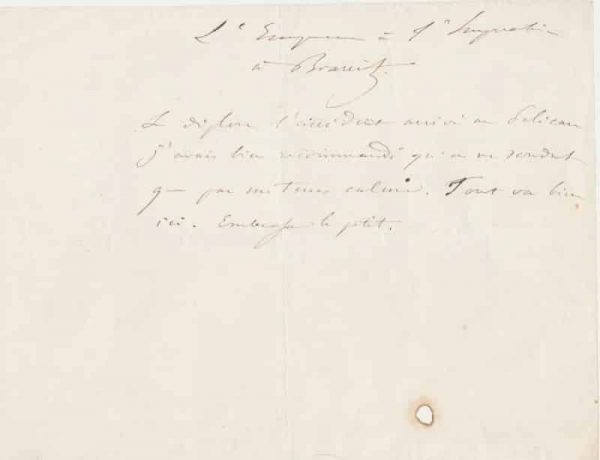 L'Empereur à l'Impératrice
à Biarritz.
Je déplore l'accident arrivé au Pélican
j'avais bien recommandé qu'on ne sondat
que par un temps calme. Tout va bien
ici. Embrasse le petit.